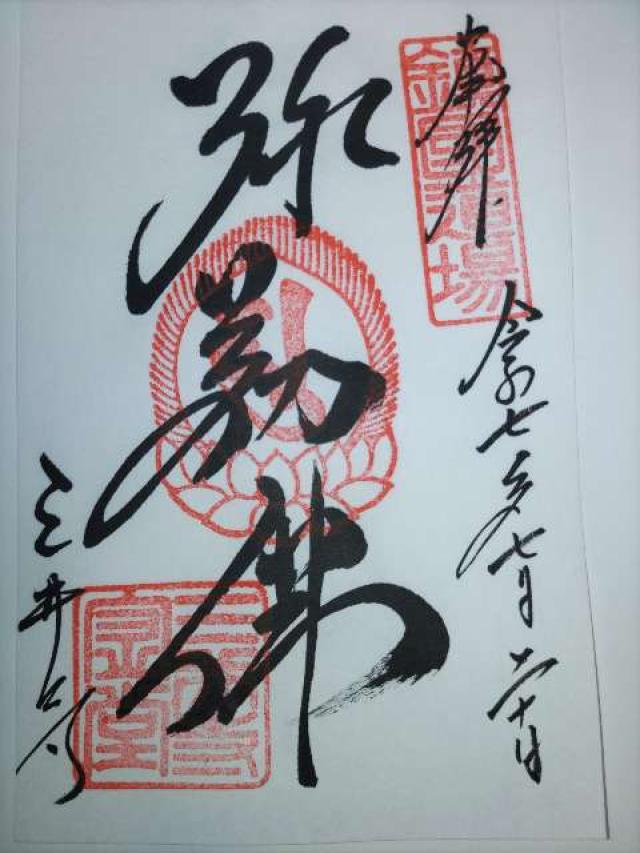 奉拝
鎮国道場
令和七年七月二十日
弥勒佛
三井寺